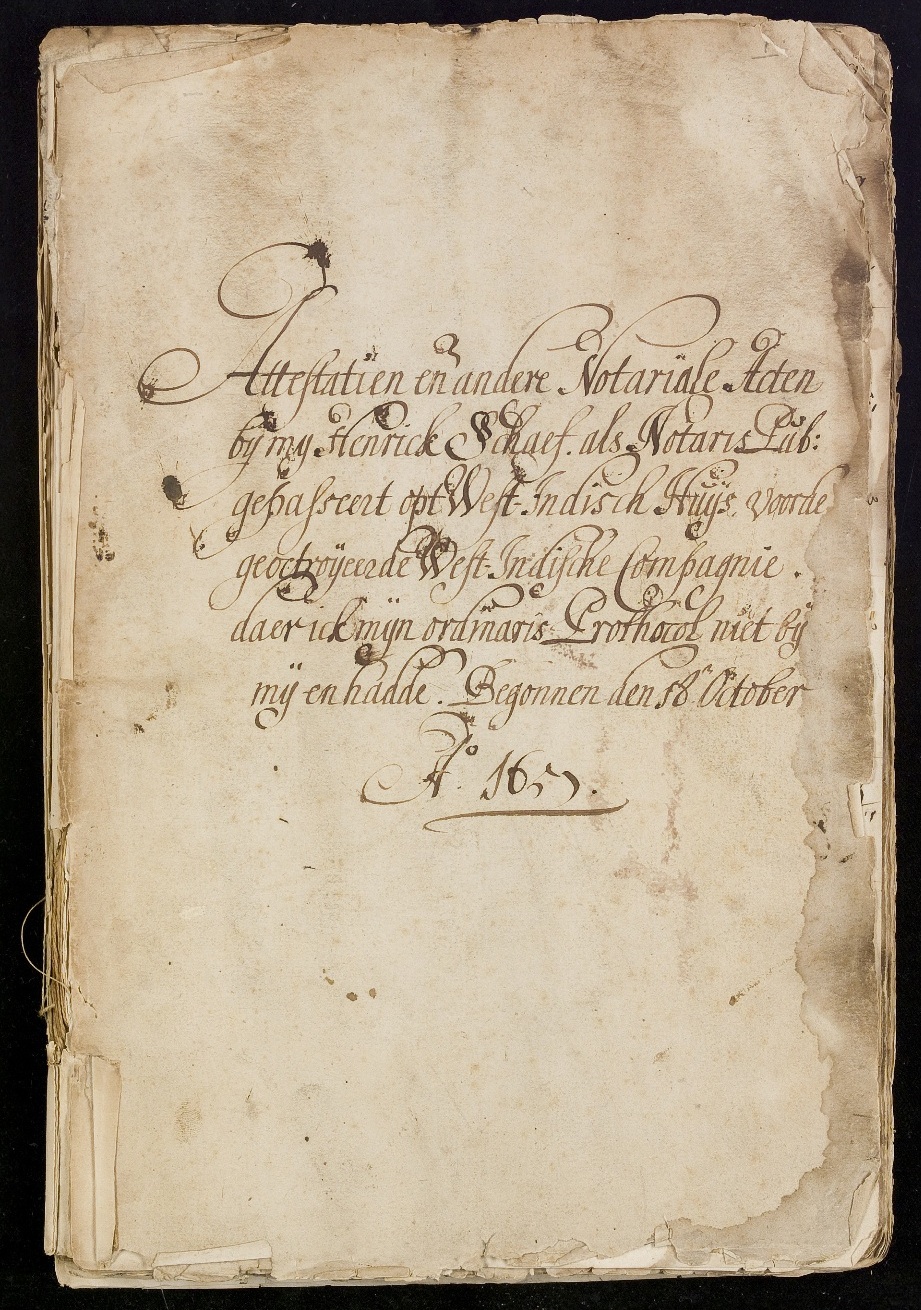 Attestatien en̄ andere Notariale Acten
by my Henrick Schaef. als Notaris Pub:
gepasseert opt West-Indisch Huÿs. voorde
geoctroÿeerde West-Indische Compagnie.
daer ick mÿn ordinaris Prothocol niet bÿ
mÿ en hadde. Begonnen den 18en October
Ao. 1657.